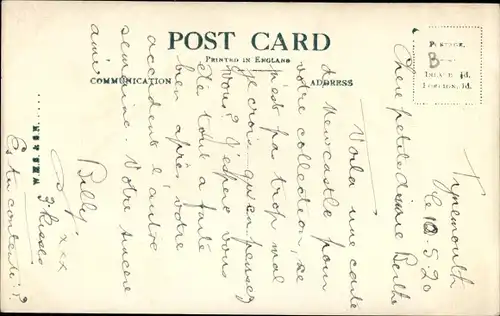 POST CARD
PRINTED IN ENGLAND
COMMUNICATION
ADDRESS
POSTAGE
INLAND ½d.
FOREIGN 1d.
Tynemouth
le 10-5-20
Chère petite Berthe
Voila une carte
de Newcastle pour
votre collection, ce
n'est pas trop mal
je crois, qu'en pensez
vous? J'espère vous
été tout a faite
bien après, votre
accident l'autre
semaine. Votre sincere
ami
Billy
xxx
3 Kisses
Es tu contente?